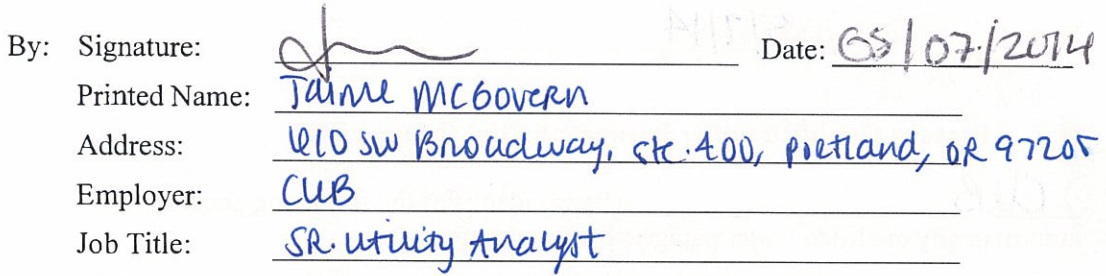 By: Signature: Date: 05/07/2014
Printed Name: Jaime McGovern
Address: 610 SW Broadway, Ste. 400, Portland, OR 97205
Employer: CUB
Job Title: SR. Utility Analyst